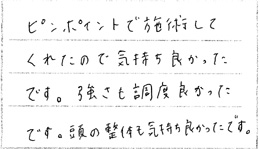 ピンポイントで施術して
くれたので気持ち良かった
です。強さも調度良かった
です。頭の整体も気持ち良かったです。